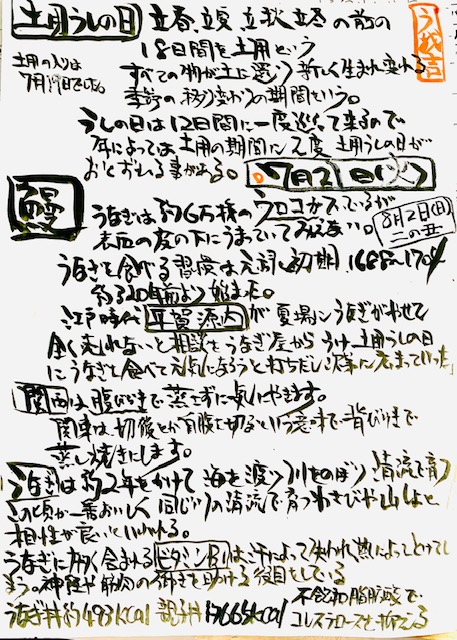 土用うしの日 立春、立夏、立秋、立冬の前の
18日間を土用という
土用の入りは
7月19日でした。
すべての物が土に還り新しく生まれ変わる
季節の移り変わりの期間をいう。
うしの日は12日間に一度巡って来るので
年によっては土用の期間に2度土用うしの日が
おとずれる事がある。
7月21日(火)
8月2日(日)
二の丑
鰻
うなぎは約6万種のウロコがついているが
表面の皮の下にうまっていて見えない。
うなぎを食べる習慣は元禄初期1688〜1704
約320年前より始まった。
江戸時代 平賀源内が夏場にうなぎがやせて
全く売れないと相談をうなぎ屋からうけ、土用うしの日
にうなぎを食べて元気になろうと打ちだし
関西は腹びらきで蒸さずに一気にやきます。
関東は切腹とか自腹を切るという意味で背びらきで
蒸し焼きにします。
うなぎは約2年をかけて海を渡り川をのぼり清流で育つ
この頃が一番おいしく同じ川の清流で育つわさびや山しょと
相性が良いといわれる。
うなぎに多く含まれるビタミンB1は汗によって失われ熱によってとけてし
まう。神経や筋肉の働きを助ける役目をしている
不飽和脂肪酸で
コレステロールを抑える
うなぎ丼 約493kcal 親子丼 約665kcal